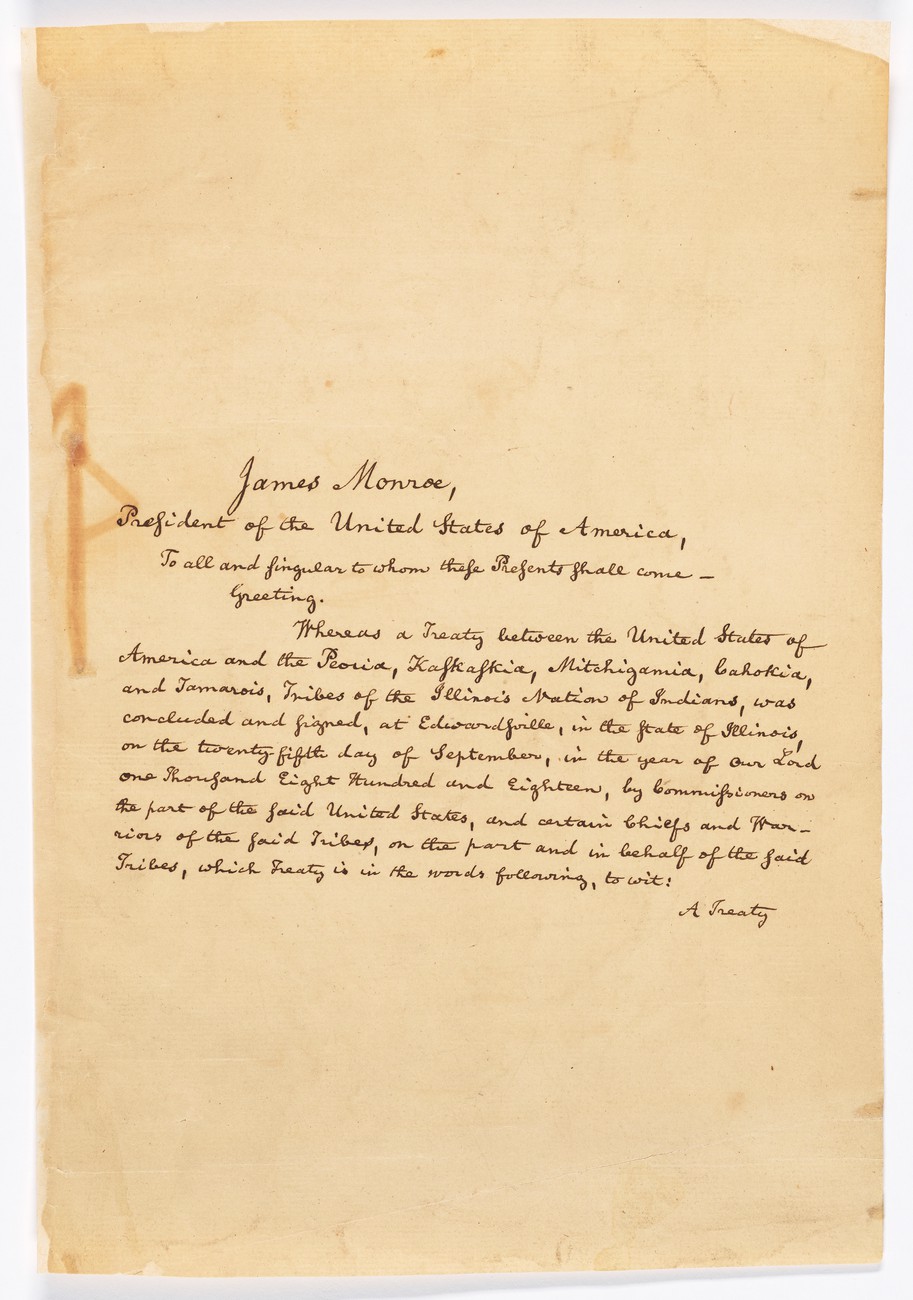 James Monroe,
President of the United States of America,
To all and singular to whom these Presents shall come –
Greeting.
Whereas a Treaty between the United States of
America and the Peoria, Kaskaskia, Mitchigamia, Cahokia,
and Tamarois, Tribes of the Illinois Nation of Indians, was
concluded and signed, at Edwardsville, in the State of Illinois,
on the twenty-fifth day of September, in the year of our Lord
one Thousand Eight Hundred and Eighteen, by Commissioners on
the part of the said United States, and certain Chiefs and War-
riors of the said Tribes, on the part and in behalf of the said
Tribes, which Treaty is in the words following, to wit:
A Treaty